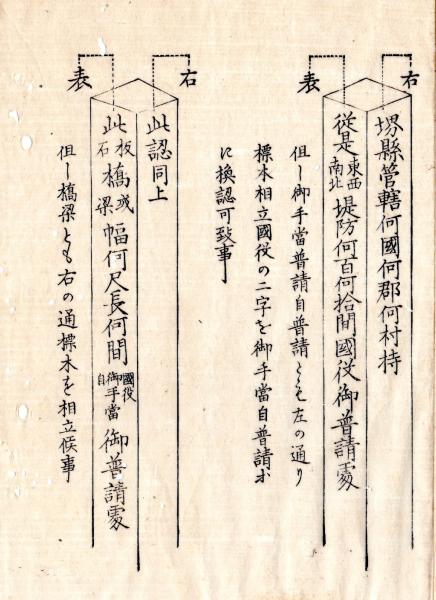 右
堺縣管轄何國何郡何村持
表
從是東西南北堤防何百何拾間國役御普請處
但シ御手當普請自普請とも左の通り
標木相立國役の二字を御手當自普請ホ
に換認可致事
右
此認同上
表
此板石橋或梁幅何尺長何間國役御手當自御普請處
但シ橋梁とも右の通標木を相立候事